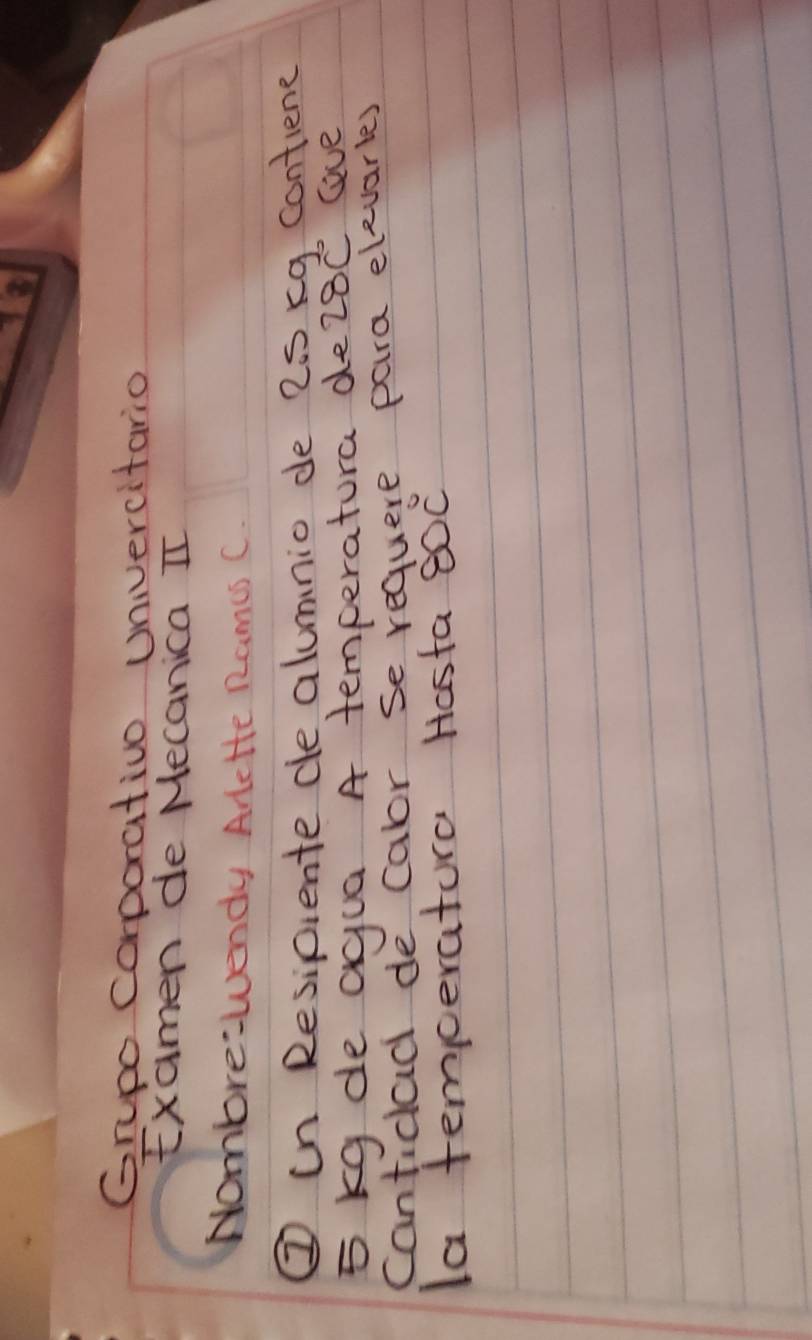 Grupo Corporativo Univercitario
Examen de Mecanica II
Nombre: Wendy Arlette Ramos C.
① Un Resipiente de aluminio de 2.5 Kg Contiene
5 Kg de agua A temperatura de 28°C Que
Cantidad de Calor Se requere para elevarles
la temperatura Hasta 80°C